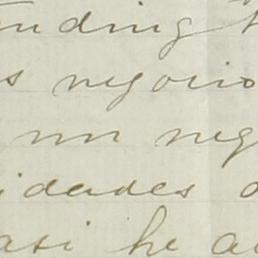 nding
s negocio
un neg
idades
asi he a